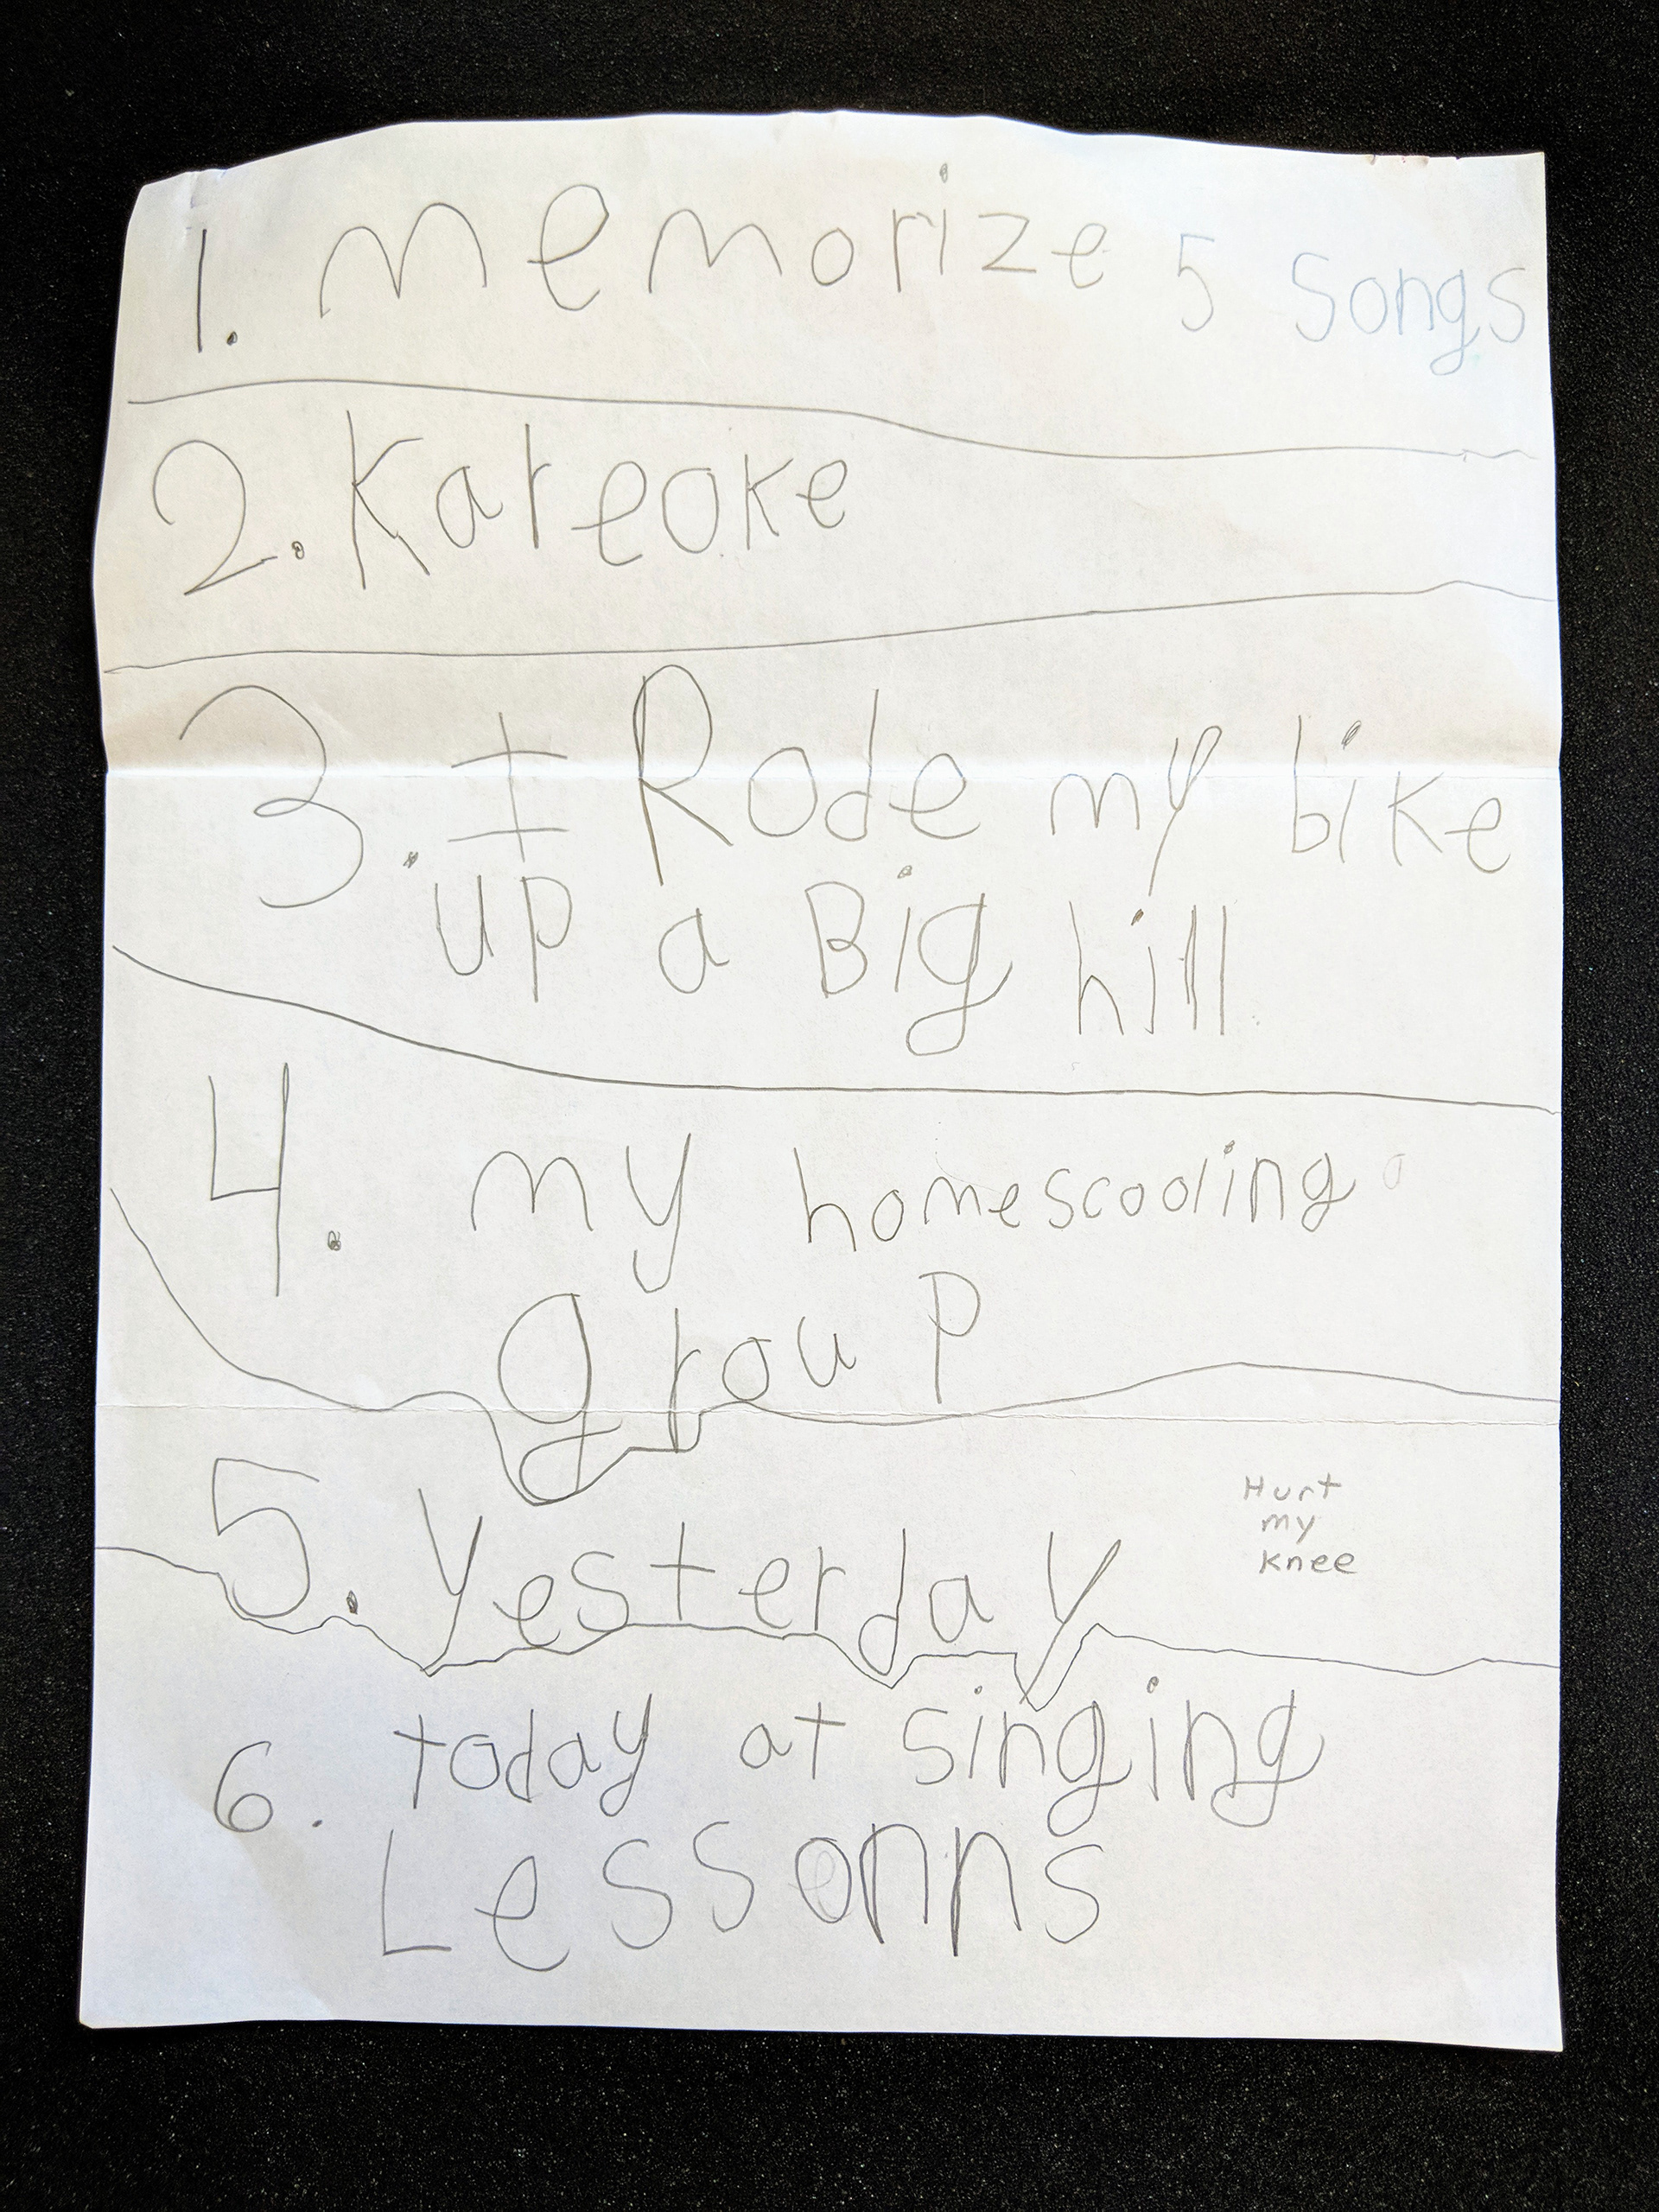 1. memorize 5 Songs
2. Kareoke
3. I Rode my bike
up a Big hill
4. my homescooling
grouP
5. yesterday
Hurt
my
knee
6. today at singing
Lessonns